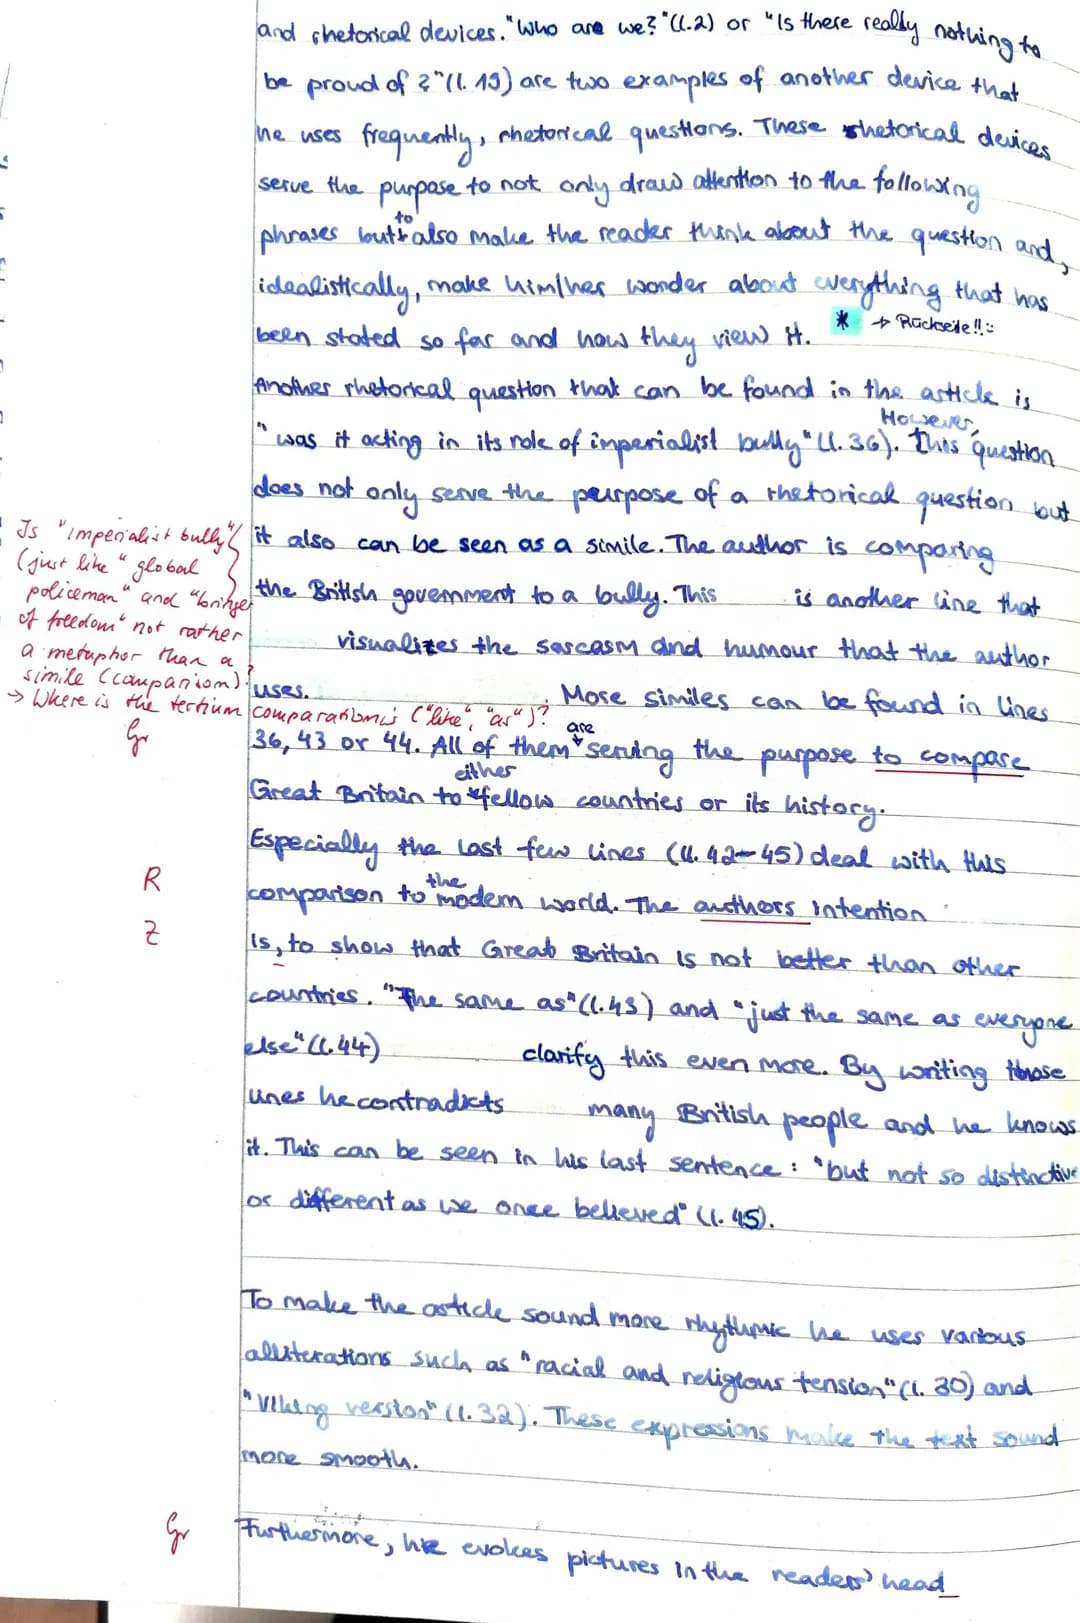 and rhetorical devices. "Who are we?" (l.2) or "Is there really nothing to
be proud of?" (l. 19) are two examples of another device that
he uses frequently, rhetorical questions. These rhetorical devices
serve the purpose to not only draw attention to the following
to
phrases but also make the reader think about the question and,
idealistically, make him/her wonder about everything that has
been stated so far and how they view it. * → Rückseite!!:
Another rhetorical question that can be found in the article is
However,
"was it acting in its role of imperialist bully" (l.36). this question
does not only serve the purpose of a rhetorical question but
it also can be seen as a simile. The author is comparing
the British government to a bully. This is another line that
visualizes the sarcasm and humour that the author
uses. More similes can be found in lines
are
36, 43 or 44. All of them serving the purpose to compare
either
Great Britain to fellow countries or its history.
Especially the last few lines (ll. 42-45) deal with this
the
comparison to modern world. The authors intention
is, to show that Great Britain is not better than other
countries. "The same as" (l.43) and "just the same as everyone
else" (l.44) clarify this even more. By writing those
lines he contradicts many British people and he knows
it. This can be seen in his last sentence: "but not so distinctive
or different as we once believed" (l. 45).
To make the article sound more rhythmic he uses various
alliterations such as "racial and religious tension" (l. 30) and
"Viking version" (l. 32). These expressions make the text sound
more smooth.
Furthermore, he evokes pictures in the readers' head
Is "imperialist bully"
(just like "global
policeman" and "bringer
of freedom" not rather
a metaphor than a
simile (comparison)?
→ Where is the tertium comparationis ("like", "as")?
Gr
R
Z
Gr